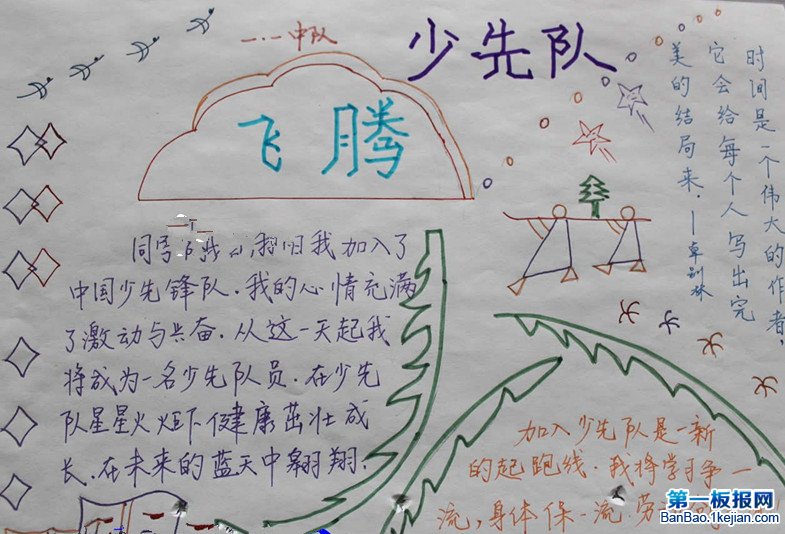 一.一中队
少先队
飞腾
时间是一个伟大的作者,
它会给每个人写出完
美的结局来.
—卓别林
我加入了
中国少先锋队.我的心情充满
了激动与兴奋.从这一天起我
将成为一名少先队员.在少先
队星星火炬下健康茁壮成
长.在未来的蓝天中翱翔.
加入少先队是一新
的起跑线.我将学习争一
流,身体保一流.劳
第一板报网
BanBao.1kejian.com